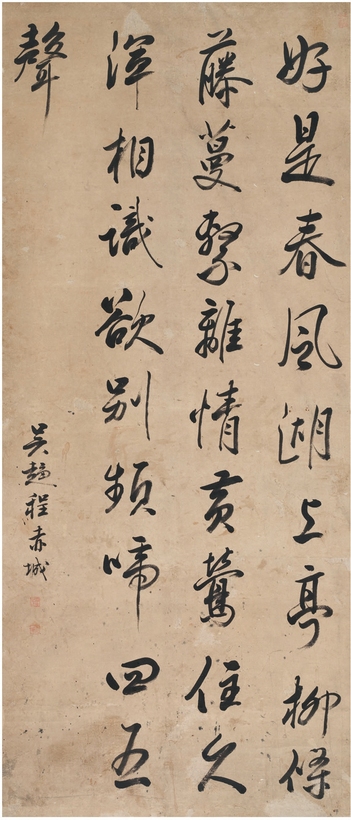 好是春風湖上亭柳條
藤蔓繫離情黄鶯住久
渾相識欲别頻啼四五
聲
吳趨程赤城